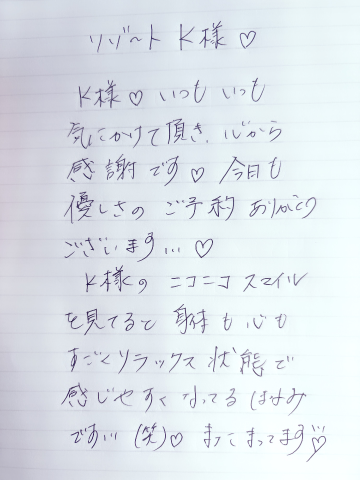 リゾート K様♡
K様♡ いつも いつも
気にかけて頂き、心から
感謝です♡ 今日も
優しさの ご予約 ありがとう
ございます…♡
K様の ニコニコ スマイル
を見てると 身体も心も
すごくリラックス 状態で
感じやすくなってる はなみ
です… (笑)♡ まってまってます♡